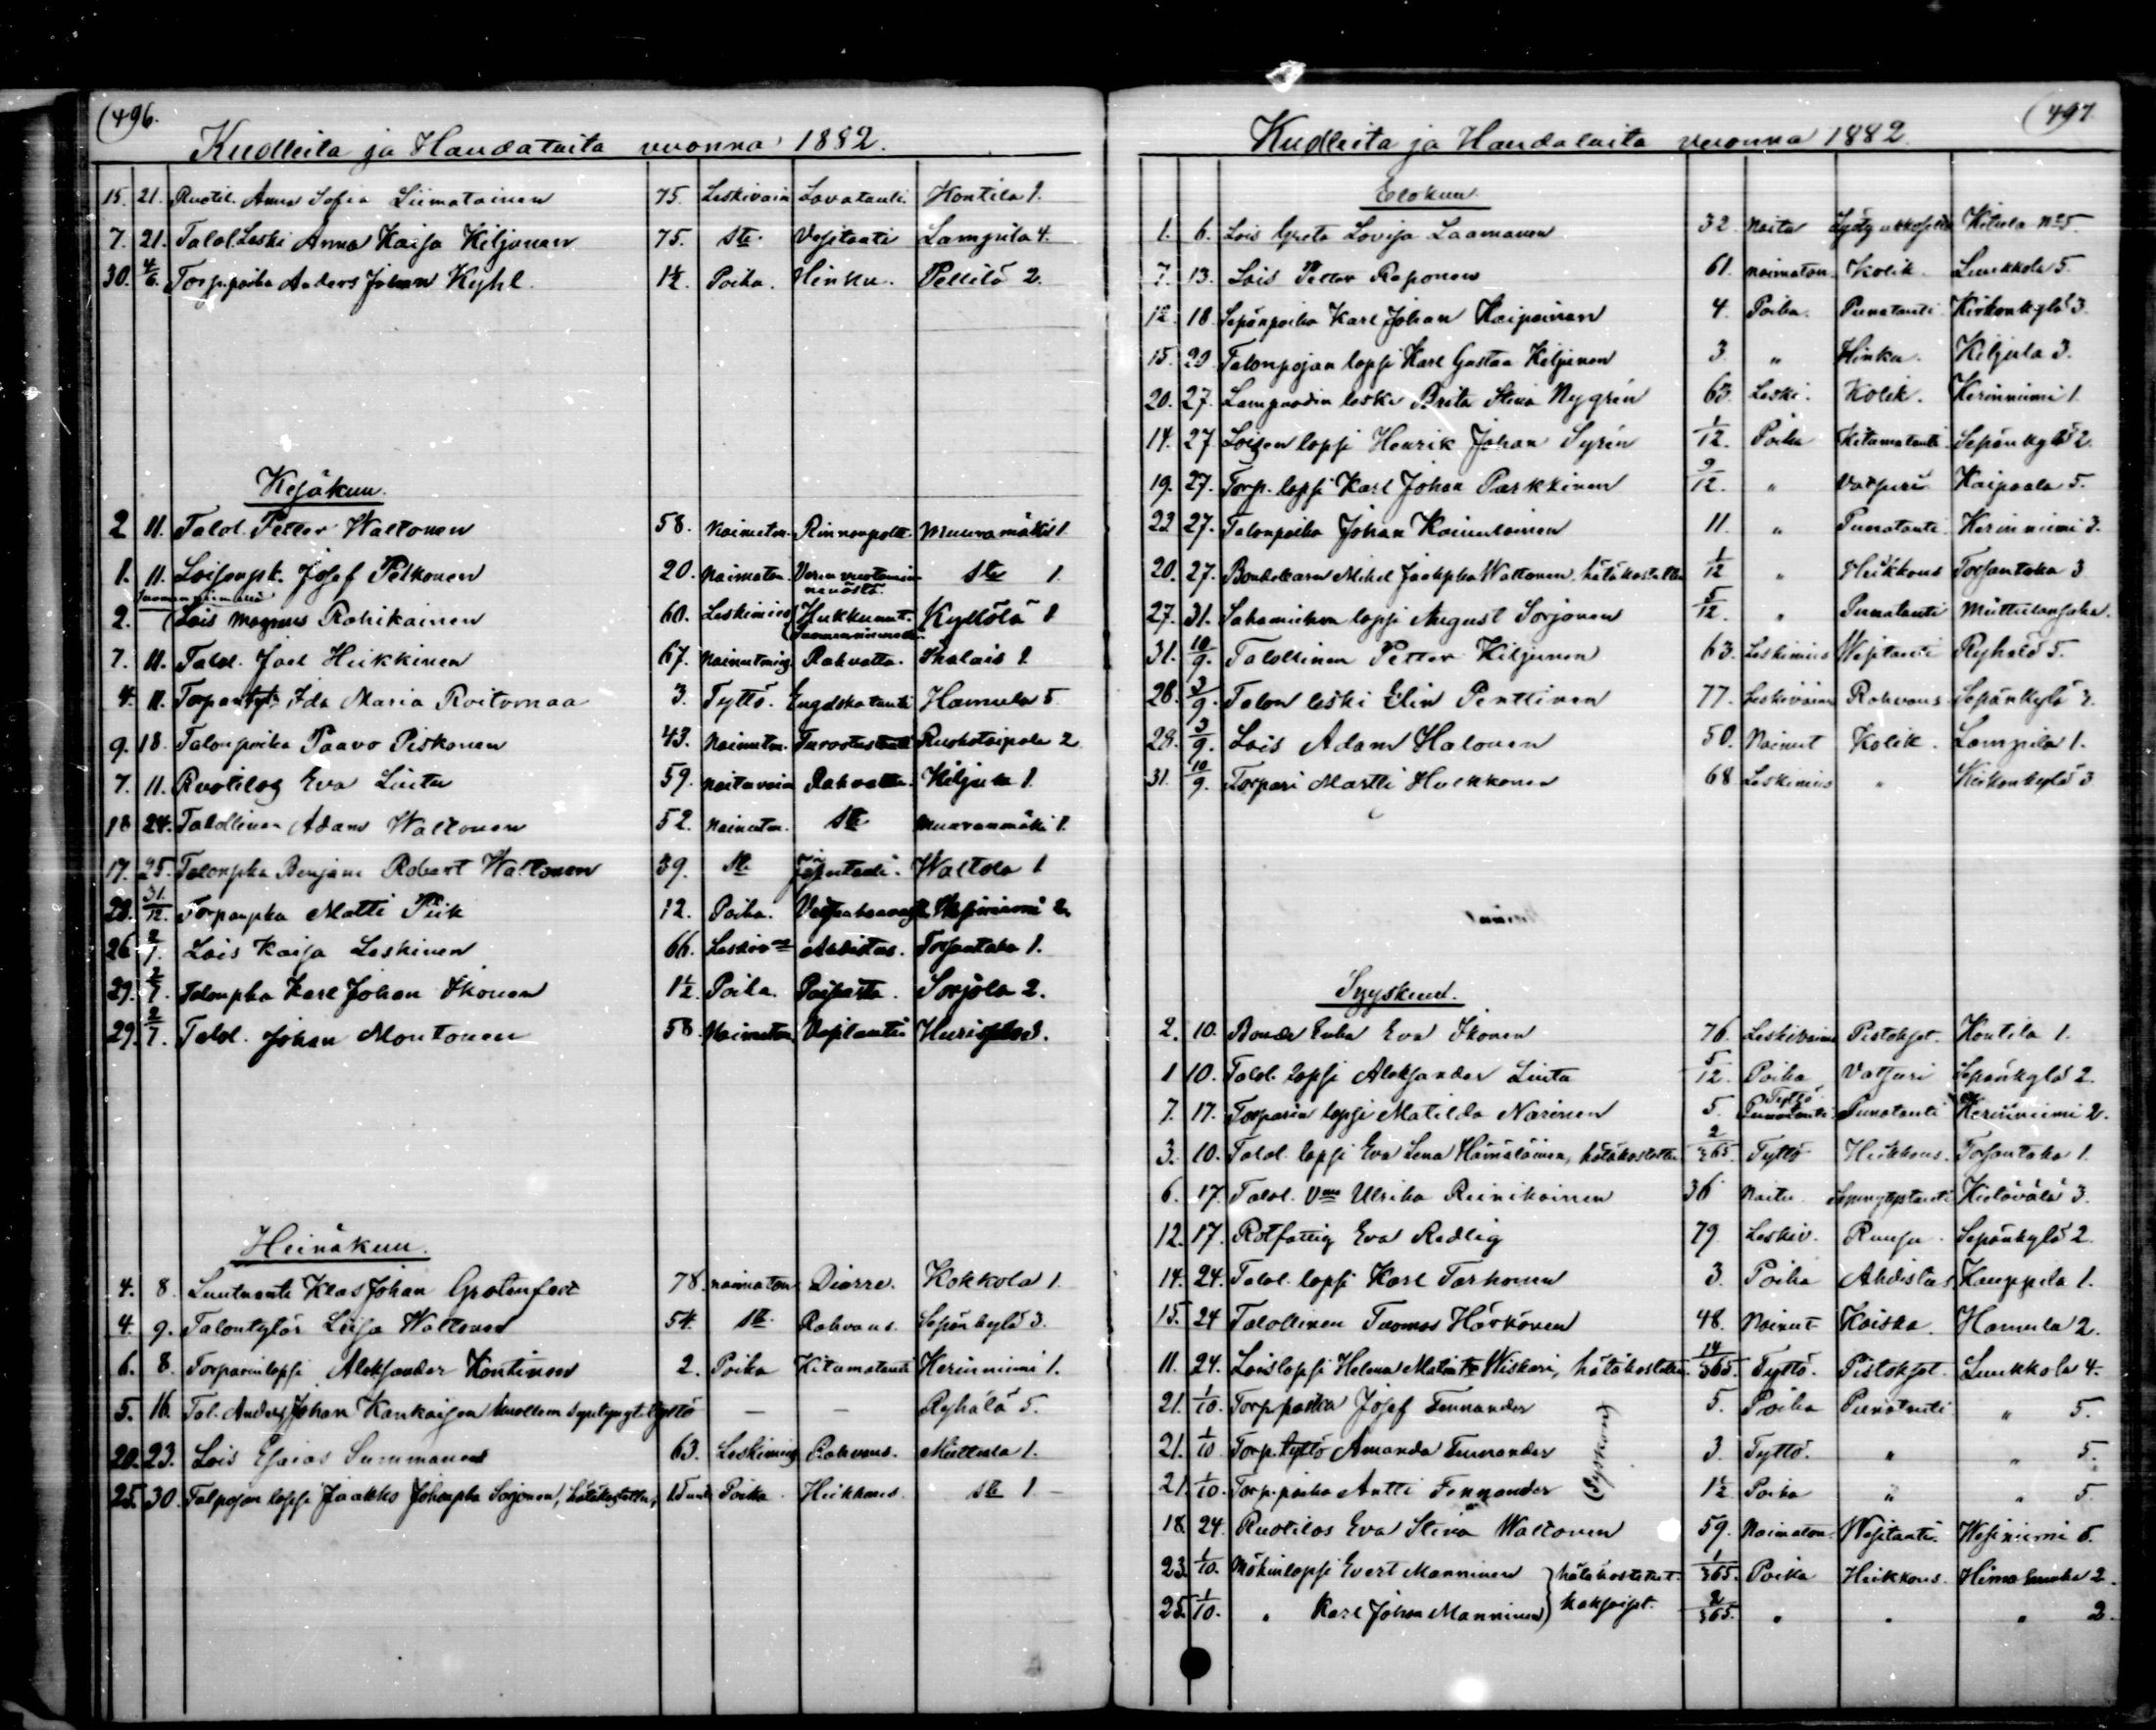 (496.
Kuolleita ja Haudatuita vuonna 1882.
15. 21. Ruotil. Anna Sofia Liimatainen 75. Leskivaim Lavatauti. Kontila 1.
7. 21. Talol. Leski Anna Kaisa Kiljunen 75. dto. Vesitauti Lampila 4.
30. 4/6. Torp.poika Anders Johan Kyhl 1½. Poika. Hinku. Pellilä 2.
Kesäkuu.
2 11. Talol. Petter Waltonen 58. Naimaton. Muuramäki 1
1. 11. Loisenpk. Josef Pelkonen 20. Naimaton Veren vuotamin nenästä. dto 1.
2. Lois Magnus Rahikainen 60. Leskimies Hukkunut. Kyllölä 1
7. 11. Talol. Joel Heikkinen 67. Rahvatta. Ihalais 1.
4. 11. Torpantyt. Ida Maria Roitomaa 3. Tyttö. Engelska tauti Hamula 5
9. 18. Talonpoika Paavo Piskonen 43. Naimaton. Ruokotaipale 2
7. 11. Ruotilas Eva Liuta 59. Naitu vaim Rahvatta. Kiljula 1.
18 24. Talollinen Adam Waltonen 52. Naimaton. dto Muuranmäki 1.
17. 25. Talonpka Benjam Robert Waltonen 39. dto Waltola 1
28. 31/12. Torpanpka Matti Piik 12. Poika. Wesiniemi 2.
26 2/7. Lois Kaisa Leskinen 66. Ahdistus. Torsantaka 1.
29. 2/7. Talonpka Karl Johan Ikonen 1½. Poika. Paisatta. Sorjola 2.
29. 2/7. Talol. Johan Montonen 58 Naimaton Vesitauti
Heinäkuu.
4. 8. Luutnantti Klas Johan Grotenfelt 78. naimaton Diarre. Kokkola 1.
4. 9. Talontytär Liisa Waltonen 54. dto. Rahvaus. Sepänkylä 3.
6. 8. Torparinlapsi Aleksander Kontinen 2. Poika Kitamatauti Kerinniemi 1.
5. 16. Tal. Anders Johan Kankaisen kuollena syntynyt tyttö — — Ryhälä 5.
20. 23. Lois Esaias Summanen 63. Leskimies Rahvaus. Miettula 1.
25. 30. Talpojan lapsi Jaakko Johanpka Sorjonen, hätäkastettu, Poika Heikkous. dto 1
(497
Kuolleita ja Haudatuita vuonna 1882.
Elokuu
1. 6. Lois Greta Lovisa Laamanen 32. Naitu Kitula No 5.
7. 13. Lois Petter Reponen 61. naimaton Kolik. Luukkola 5.
12. 18 Sepänpoika Karl Johan Kaipainen 4. Poika. Punatauti Kirkonkylä 3.
15. 20 Talonpojan lapsi Karl Gustaa Kiljunen 3. " Hinku. Kiljula 3.
20. 27. Lampuodin leski Brita Stina Nygrén 63. Leski. Kolik. Kerinniemi 1.
14. 27 Loisen lapsi Henrik Johan Syrén 1/12. Poika Kitamatauti Sepänkylä 2.
19. 27. Torp. lapsi Karl Johan Parkkinen 9/12. " Vatsuri Kaipaala 5.
22 27. Talonpoika Johan Kainulainen 11. " Punatauti Kerinniemi 3.
20. 27. Mikel Jaakpka Waltonen. hätäkastettu 1/12 " Heikkous Torsantaka 3
27. 31. Sahamiehen lapsi August Sorjonen 5/12. " Punatauti
31. 10/9. Talollinen Petter Kiljunen 63. Leskimies Wesitauti Ryhälä 5.
28. 3/9. Talon leski Elin Penttinen 77. Leskivaimo Rahvaus Sepänkylä 3.
28. 3/9. Lois Adam Halonen 50. Nainut Kolik. Lampila 1.
31. 10/9. Torpari Martti Holkkonen 68 Leskimies " Kirkonkylä 3
Syyskuu.
2. 10. Eva Ikonen 76. Leskivaimo Pistokset. Kontila 1.
1 10. Talol. lapsi Aleksander Liuta 5/12. Poika Vatsuri Sepänkylä 2.
7. 17. Torparin lapsi Matilda Narinen 5. Tyttö Punatauti Kerinniemi 2.
3. 10. Talol. lapsi Eva Lena Hämäläinen, hätäkastettu 2/365 Tyttö Heikkous. Torsantaka 1.
6. 17. Talol. Vmo Ulrika Reinikainen 36 Naitu Kietävälä 3.
12. 17. Rotfattig Eva Redlig 79 Leskiv. Ruusu. Sepänkylä 2.
14. 24. Talol. lapsi Karl Tarkonen 3. Poika Ahdistus Kauppila 1.
15. 24 Talollinen Tuomas Härkönen 48. Nainut Hamula 2.
11. 24. Loislapsi Helena Matinte Wiskari, hätäkastettu. 14/365. Tyttö. Pistokset. Luukkola 4.
21. 1/10. Torp.poika Josef Fennander 5. Poika Punatauti " 5.
21. 1/10 Torp. tyttö Amanda Fennander (Syskon) 3. Tyttö. " " 5.
21. 1/10. Torp.poika Antti Fennander 1½ Poika " " 5
18. 24. Ruotilas Eva Stina Waltonen 59. Naimaton. Wesitauti. Wesiniemi 5.
23. 1/10. Mökinlapsi Evert Manninen } hätäkastetut 1/365. Poika Heikkous. 2.
25. 1/10. " Karl Johan Manninen } kaksoiset. 2/365. " " " 2.